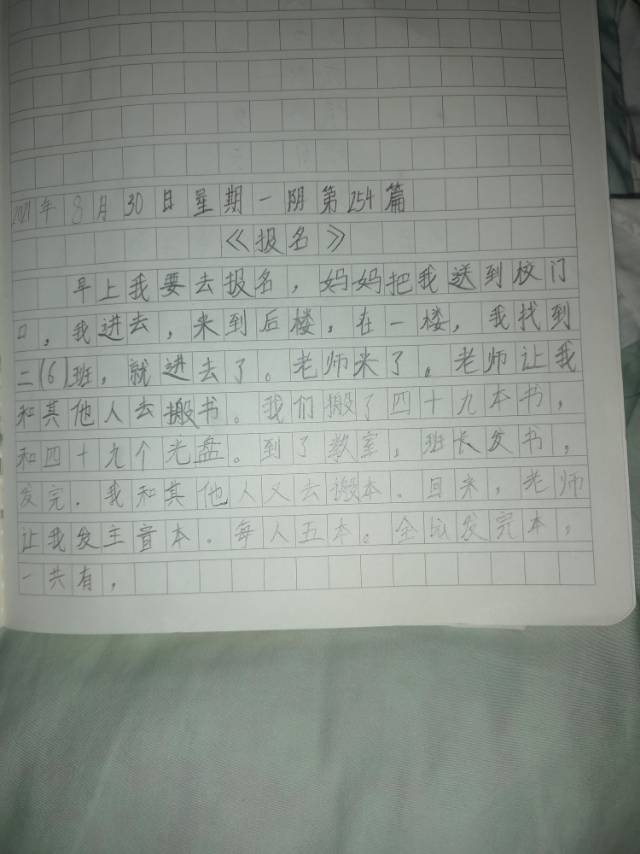 2021年8月30日星期一阴第254篇
《报名》
早上我要去报名，妈妈把我送到校门
口，我进去，来到后楼，在一楼，我找到
二(6)班，就进去了。老师来了。老师让我
和其他人去搬书。我们搬了四十九本书，
和四十九个光盘。到了教室，班长发书，
发完．我和其他人又去搬本．回来，老师
让我发主本．每人五本。全发完本，
一共有，